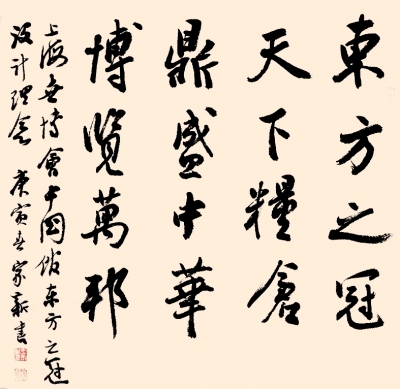 東方之冠
天下糧倉
鼎盛中華
博覽萬邦
上海世博會中国館东方之冠
设计理念 庚寅春家新書